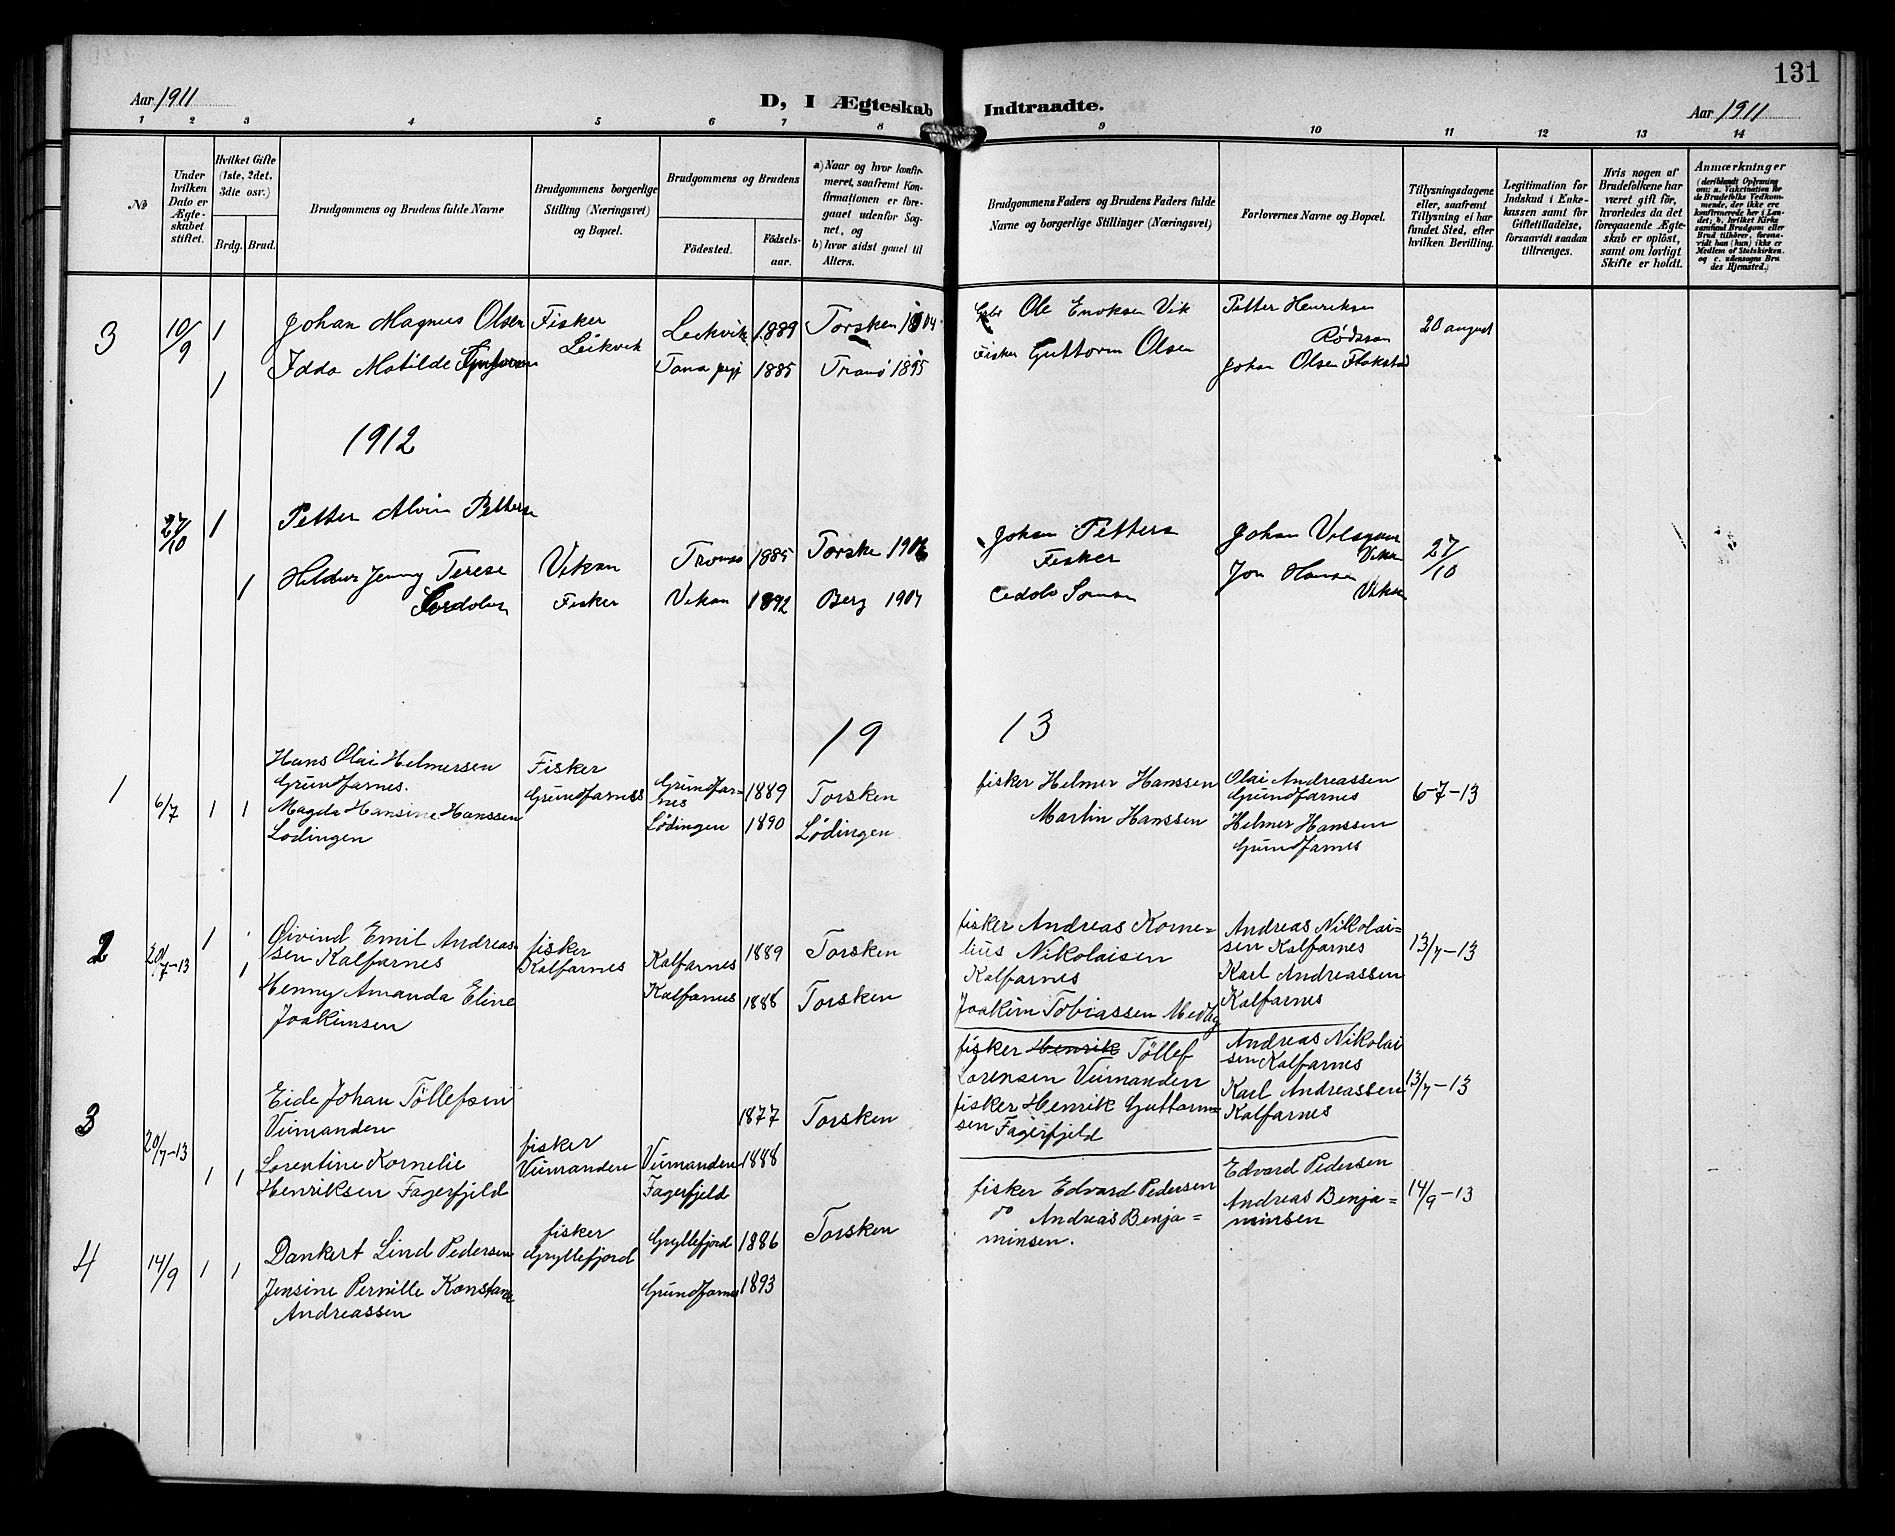 131
Aar 1911
D, I Ægteskab Indtraadte.
Aar 1911
1 2 3 4 5 6 7 8 9 10 11 12 13 14
No
Under hvilken Dato er Ægteskabet stiftet.
Hvilket Gifte (1ste, 2det, 3die osv.)
Brdg. Brud.
Brudgommens og Brudens fulde Navne
Brudgommens borgerlige Stilling (Næringsvei) og Bopæl.
Brudgommens og Brudens
Fødested.
Fødselsaar.
a) Naar og hvor konfirmeret, saafremt Konfirmationen er foregaaet udenfor Sognet, og
b) hvor sidst gaaet til Alters.
Brudgommens Faders og Brudens Faders fulde Navne og borgerlige Stillinger (Næringsvei)
Forlovernes Navne og Bopæl.
Tillysningsdagene eller, saafremt Tillysning ei har fundet Sted, efter hvilken Bevilling.
Legitimation for Indskud i Enkekassen samt for Giftetilladelse, forsaavidt saadan tiltrænges.
Hvis nogen af Brudefolkene har været gift før, hvorledes da det foregaaende Ægteskab er opløst, samt om lovligt Skifte er holdt.
Anmærkninger
(deriblandt Oplysning om: a. Vakcination for de Brudefolks Vedkommende, der ikke ere konfirmerede her i Landet; b. hvilket Kirkesamfund Brudgom eller Brud tilhører, forsaavidt han (hun) ikke er Medlem af Statskirken, og c. udensogns Brudes Hjemsted.)
3 10/9 1 Johan Magnus Olsen Fisker Leikvik 1889 Torsken 1904 Ole Enoksen Vik Petter Henriksen 20 august
Leikvik
1 Idda Matilde 1885 Tranø 1895 Fisker Guttorm Olsen Johan Olsen Flakstad
1912
27/10 1 Petter Alvin Petters
Tromsø 1885 Torske 1906 Johan Petters Johan 27/10
Jenny Terese Vikan Fisker Vikan
1 Fisker Vikan 1892 Berg 1907 Jon Hansen
1913
1 6/7 1 1 Hans Olai Helmersen Fisker fisker Helmer Hanssen Olai Andreassen 6-7-13
Grundfarnes. Grundfarnes Grundfarnes 1889 Torsken Grundfarnes
Magda Hansine Hanssen Lødingen 1890 Lødingen Martin Hanssen Helmer Hanssen
Lødingen Grundfarnes
2 20/7-13 1 Øivind Emil Andreas- fisker 1889 Torsken fisker Andreas Korne- Andreas Nikolai= 13/7-13
sen Kalfarnes Kalfarnes Kalfarnes lius Nikolaisen sen Kalfarnes
1 Henny Amanda Eline Kalfarnes 1888 Torsken Kalfarnes Karl Andreassen
Joakimsen Joakim Tobiassen Medby Kalfarnes
3 20/7-13 fisker Henrik Tøllef Andreas Nikolai
Eide Johan Tøllefsen Lorensen Veimanden sen Kalfarnes
Veimanden 1877 Torsken fisker Henrik Guttorm= Karl Andreassen 13/7-13
fisker sen Fagerfjeld Kalfarnes
1 1 Lorentine Kornelie Veimanden Veimanden 1888
Henriksen Fagerfjeld Fagerfjeld
4 14/9 1 1 fisker Torsken fisker Edvard Pedersen Edvard Pedersen 14/9-13
Dankert Lind Pedersen Gryllefjord Gryllefjord 1886 do Andreas Benja= Andreas Benja=
Jensine Pernille Konstanse Grundfarnes 1893 minsen. minsen
Andreassen